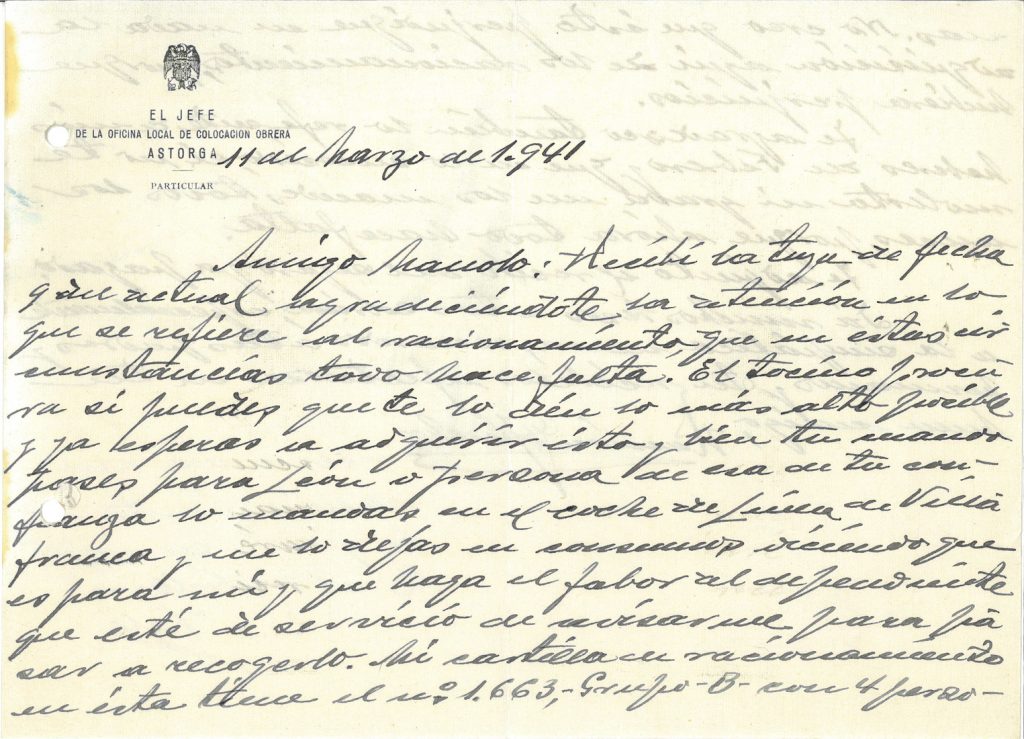 EL JEFE
DE LA OFICINA LOCAL DE COLOCACION OBRERA
ASTORGA
PARTICULAR
11 de Marzo de 1.941
Amigo Manolo: Recibí la tuya de fecha
9 del actual agradeciéndote la atención en lo
que se refiere al racionamiento, que en éstas cir
cunstáncias todo hace falta. El tocino procú
ra si puedes, que te lo dén lo más alto posible
y ya esperas a adquirir ésto y bien tu cuando
pases para León o persona de esa de tu con-
fianza lo mandas en el coche de Línea de Villa
franca y me lo dejas en consumos, diciendo que
es para mí y que haga el fabor al dependiente
que esté de servicio de avisarme para pa
sar a recogerlo. Mi cartilla de racionamiento
en ésta tiene el nº 1.663,- Grupo -B- con 4 perso-